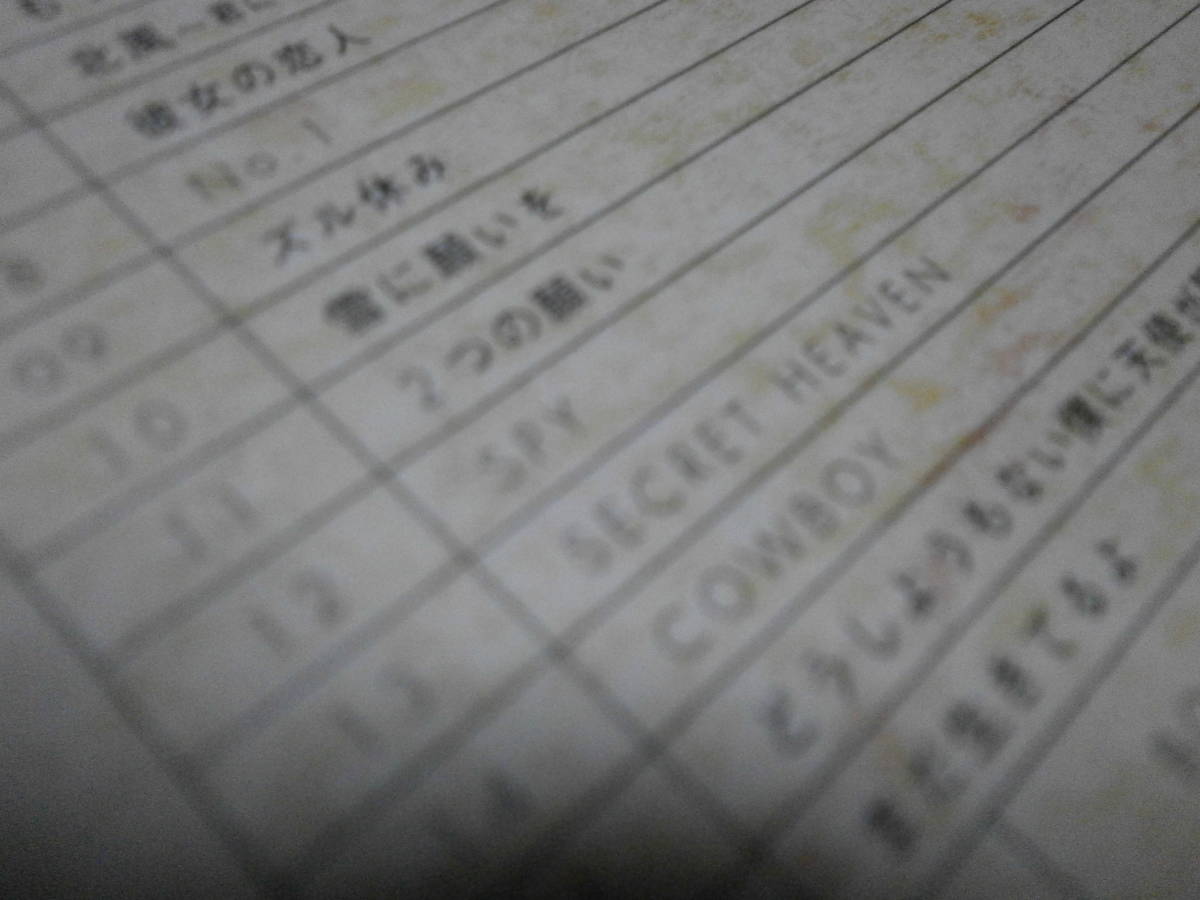 北風~君に
彼女の恋人
8 No.1
09 ズル休み
10 雪に願いを
11 2つの願い
12 SPY
13 SECRET HEAVEN
14 COWBOY
どうしようもない僕に天使が
まだ生きてるよ